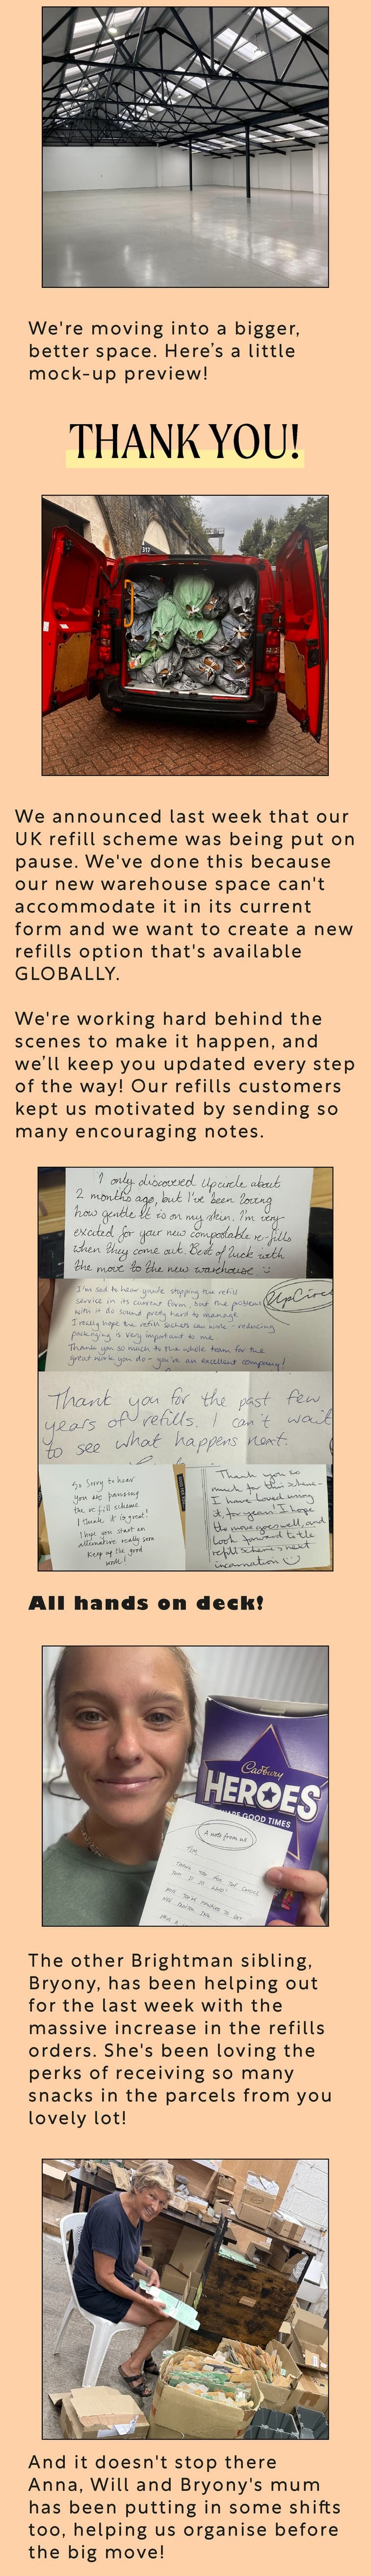 We're moving into a bigger,
better space. Here's a little
mock-up preview!
THANK YOU!
317
We announced last week that our
UK refill scheme was being put on
pause. We've done this because
our new warehouse space can't
accommodate it in its current
form and we want to create a new
refills option that's available
GLOBALLY.
We're working hard behind the
scenes to make it happen, and
we'll keep you updated every step
of the way! Our refills customers
kept us motivated by sending so
many encouraging notes.
I only discovered Upcircle about
2 months ago, but I've been loving
how gentle it is on my skin. I'm very
excited for your new compostable re-fills
when they come out. Best of luck with
the move to the new warehouse :)
I'm sad to hear you're stopping the refill
service in its current form, but the problems
with it do sound pretty hard to manage.
I really hope the refill sachets can work - reducing
packaging is very important to me.
Thank you so much to the whole team for the
great work you do - you're an excellent company!
UpCircl
Thank you for the past few
years of refills. I can't wait
to see what happens next.
So sorry to hear
you are pausing
the refill scheme
I think it is great!
I hope you start an
alternative really soon
Keep up the good
work!
Thank you so
much for this scheme -
I have loved using
it, for years. I hope
the move goes well, and
look forward to the
refill scheme's next
incarnation :)
All hands on deck!
Cadbury
HEROES
SHARE GOOD TIMES
A note from us
The other Brightman sibling,
Bryony, has been helping out
for the last week with the
massive increase in the refills
orders. She's been loving the
perks of receiving so many
snacks in the parcels from you
lovely lot!
And it doesn't stop there
Anna, Will and Bryony's mum
has been putting in some shifts
too, helping us organise before
the big move!